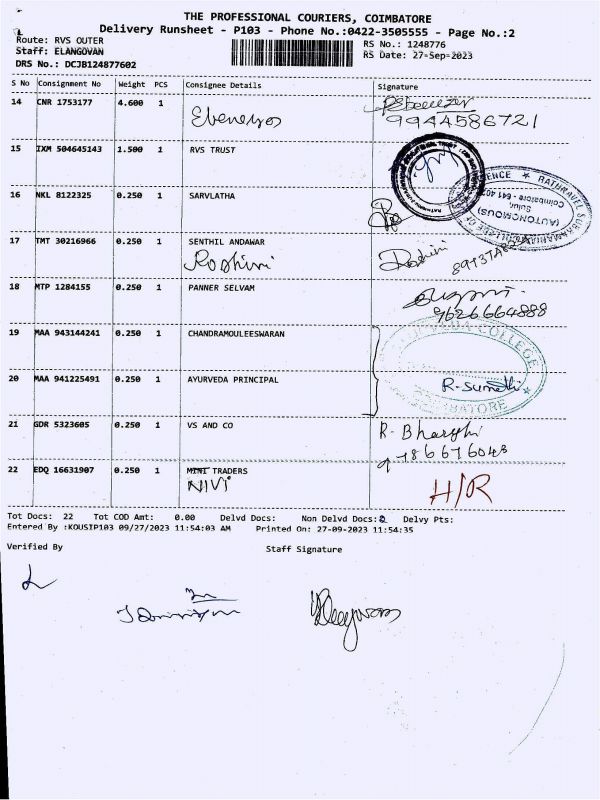 THE PROFESSIONAL COURIERS, COIMBATORE
Delivery Runsheet - P103 - Phone No.:0422-3505555 - Page No.:2
Route: RVS OUTER RS No.: 1248776
Staff: ELANGOVAN RS Date: 27-Sep-2023
DRS No.: DCJB124877602
S No Consignment No Weight PCS Consignee Details Signature
14 CNR 1753177 4.600 1 Ebenezer
9944586721
15 IXM 504645143 1.500 1 RVS TRUST
16 NKL 8122325 0.250 1 SARVLATHA
(AUTONOMOUS)
Sulur,
Coimbatore - 641 402
17 TMT 30216966 0.250 1 SENTHIL ANDAWAR
Roshini Roshini
18 MTP 1284155 0.250 1 PANNER SELVAM
9626664888
19 MAA 943144241 0.250 1 CHANDRAMOULEESWARAN
AYURVEDA COLLEGE
20 MAA 941225491 0.250 1 AYURVEDA PRINCIPAL R-Sumathi
COIMBATORE
21 GDR 5323605 0.250 1 VS AND CO R. Bharathi
22 EDQ 16631907 0.250 1 MINI TRADERS H/R
NIVI
Tot Docs: 22 Tot COD Amt: 0.00 Delvd Docs: Non Delvd Docs: Delvy Pts:
Entered By :KOUSIP103 09/27/2023 11:54:03 AM Printed On: 27-09-2023 11:54:35
Verified By Staff Signature